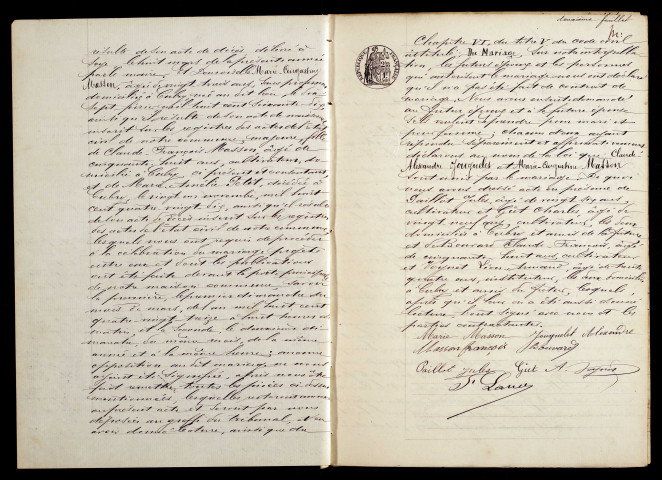 résulte de son acte de décès, délivré à
le huit mars de la présente année
par le maire; et Demoiselle Marie Augustine
Masson, âgée de vingt trois ans, sans profession
domiciliée à Cubry, née au dit lieu, le dix
sept juin mil huit cent soixante-dix
ainsi qu'il résulte de son acte de naissance
inscrit sur les registres des actes de l'état
civil de notre commune; majeure, fille
de Claude François Masson âgé de
cinquante huit ans, cultivateur, do
micilié à Cubry ci présent et consentant
et de Marie Amélie Petit, décédée à
Cubry, le vingt un novembre, mil huit
cent quatre vingt dix, ainsi qu'il résulte
de son acte de décès inscrit sur les registres
des actes de l'état civil de notre commune,
lesquels nous ont requis de procéder
à la célébration du mariage projeté
entre eux et dont les publications
ont été faite devant la porte principale
de notre maison commune, savoir
la première, le premier dimanche du
mois de mars, de l'an mil huit cent
quatre vingt treize à huit heures du
matin, et la seconde, le deuxième di
manche, du même mois, de la même
année et à la même heure; aucune
opposition au dit mariage ne nous
ayant été signifiée, après nous être
fait remettre toutes les pièces ci dessus
mentionnées, lesquelles
au présent acte et seront par nous
déposées au greffe du tribunal, et en
avoir donné lecture, ainsi que du
deuxième feuillet
Chapitre VI, du titre V, du code civil
intitulé, Du Mariage, sur notre interpella
tion, les futurs époux et les personnes
qui autorisent le mariage nous ont déclaré
qu'il n'a pas été fait de contrat de
mariage. Nous avons ensuite demandé
au futur époux et à la future épouse
s'ils veulent se prendre pour mari et
pour femme; chacun d'eux ayant
répondu séparément et affirmativement
déclarons au nom de la loi que Claude
Alexandre Jouquelet et Marie Augustine Masson
sont unis par le mariage. De quoi
nous avons dressé acte en présence de
Paillot Jules, âgé de vingt six ans,
cultivateur et Giet Charles, âgé de
vingt neuf ans, cultivateur, les deux
domiciliés à Cubry et amis de la future
et Claude François, âgé
de cinquante huit ans, cultivateur
et âgé de trente
quatre ans, instituteur, les deux domiciliés
à Cubry et amis du futur, lesquels
après qu'il leur en a été aussi donné
lecture, l'ont signé avec nous et les
parties contractantes.
Marie Masson Jouquelet Alexandre
Masson françois
Paillot Jules Giet